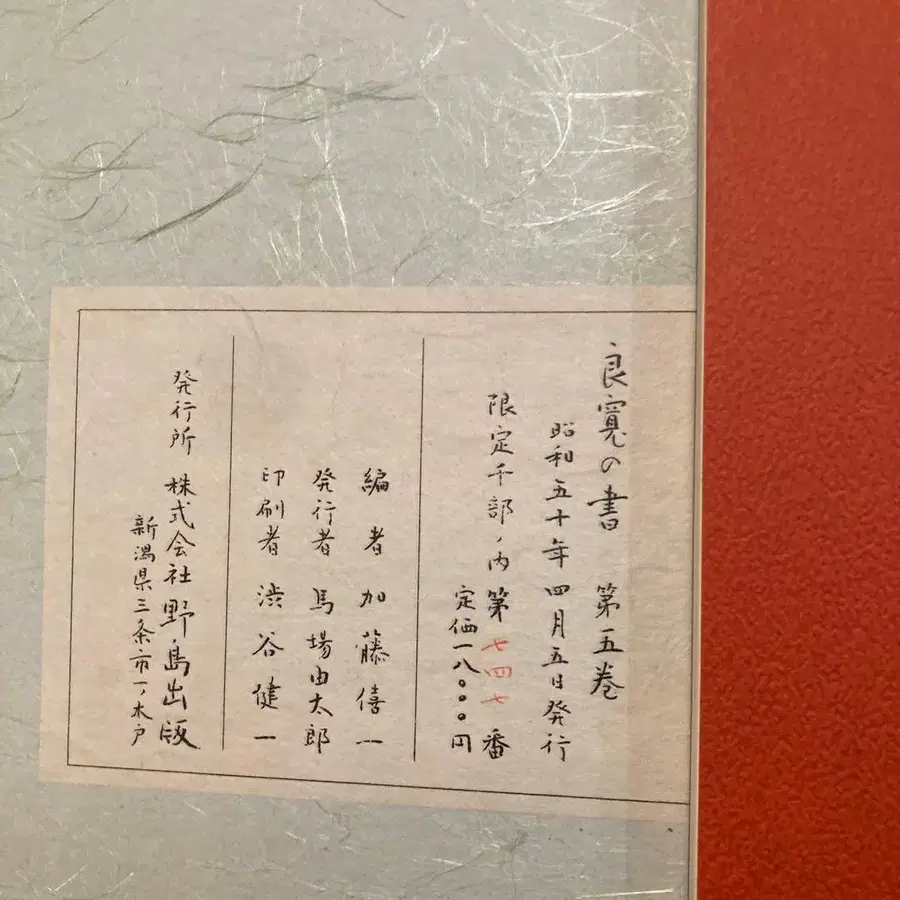 良寛の書　第五巻
昭和五十年四月五日発行
限定千部ノ内第七四七番
定価一八〇〇〇円
編者　加藤僖一
発行者　馬場由太郎
印刷者　渋谷健一
発行所　株式会社野島出版
新潟県三条市一ノ木戸